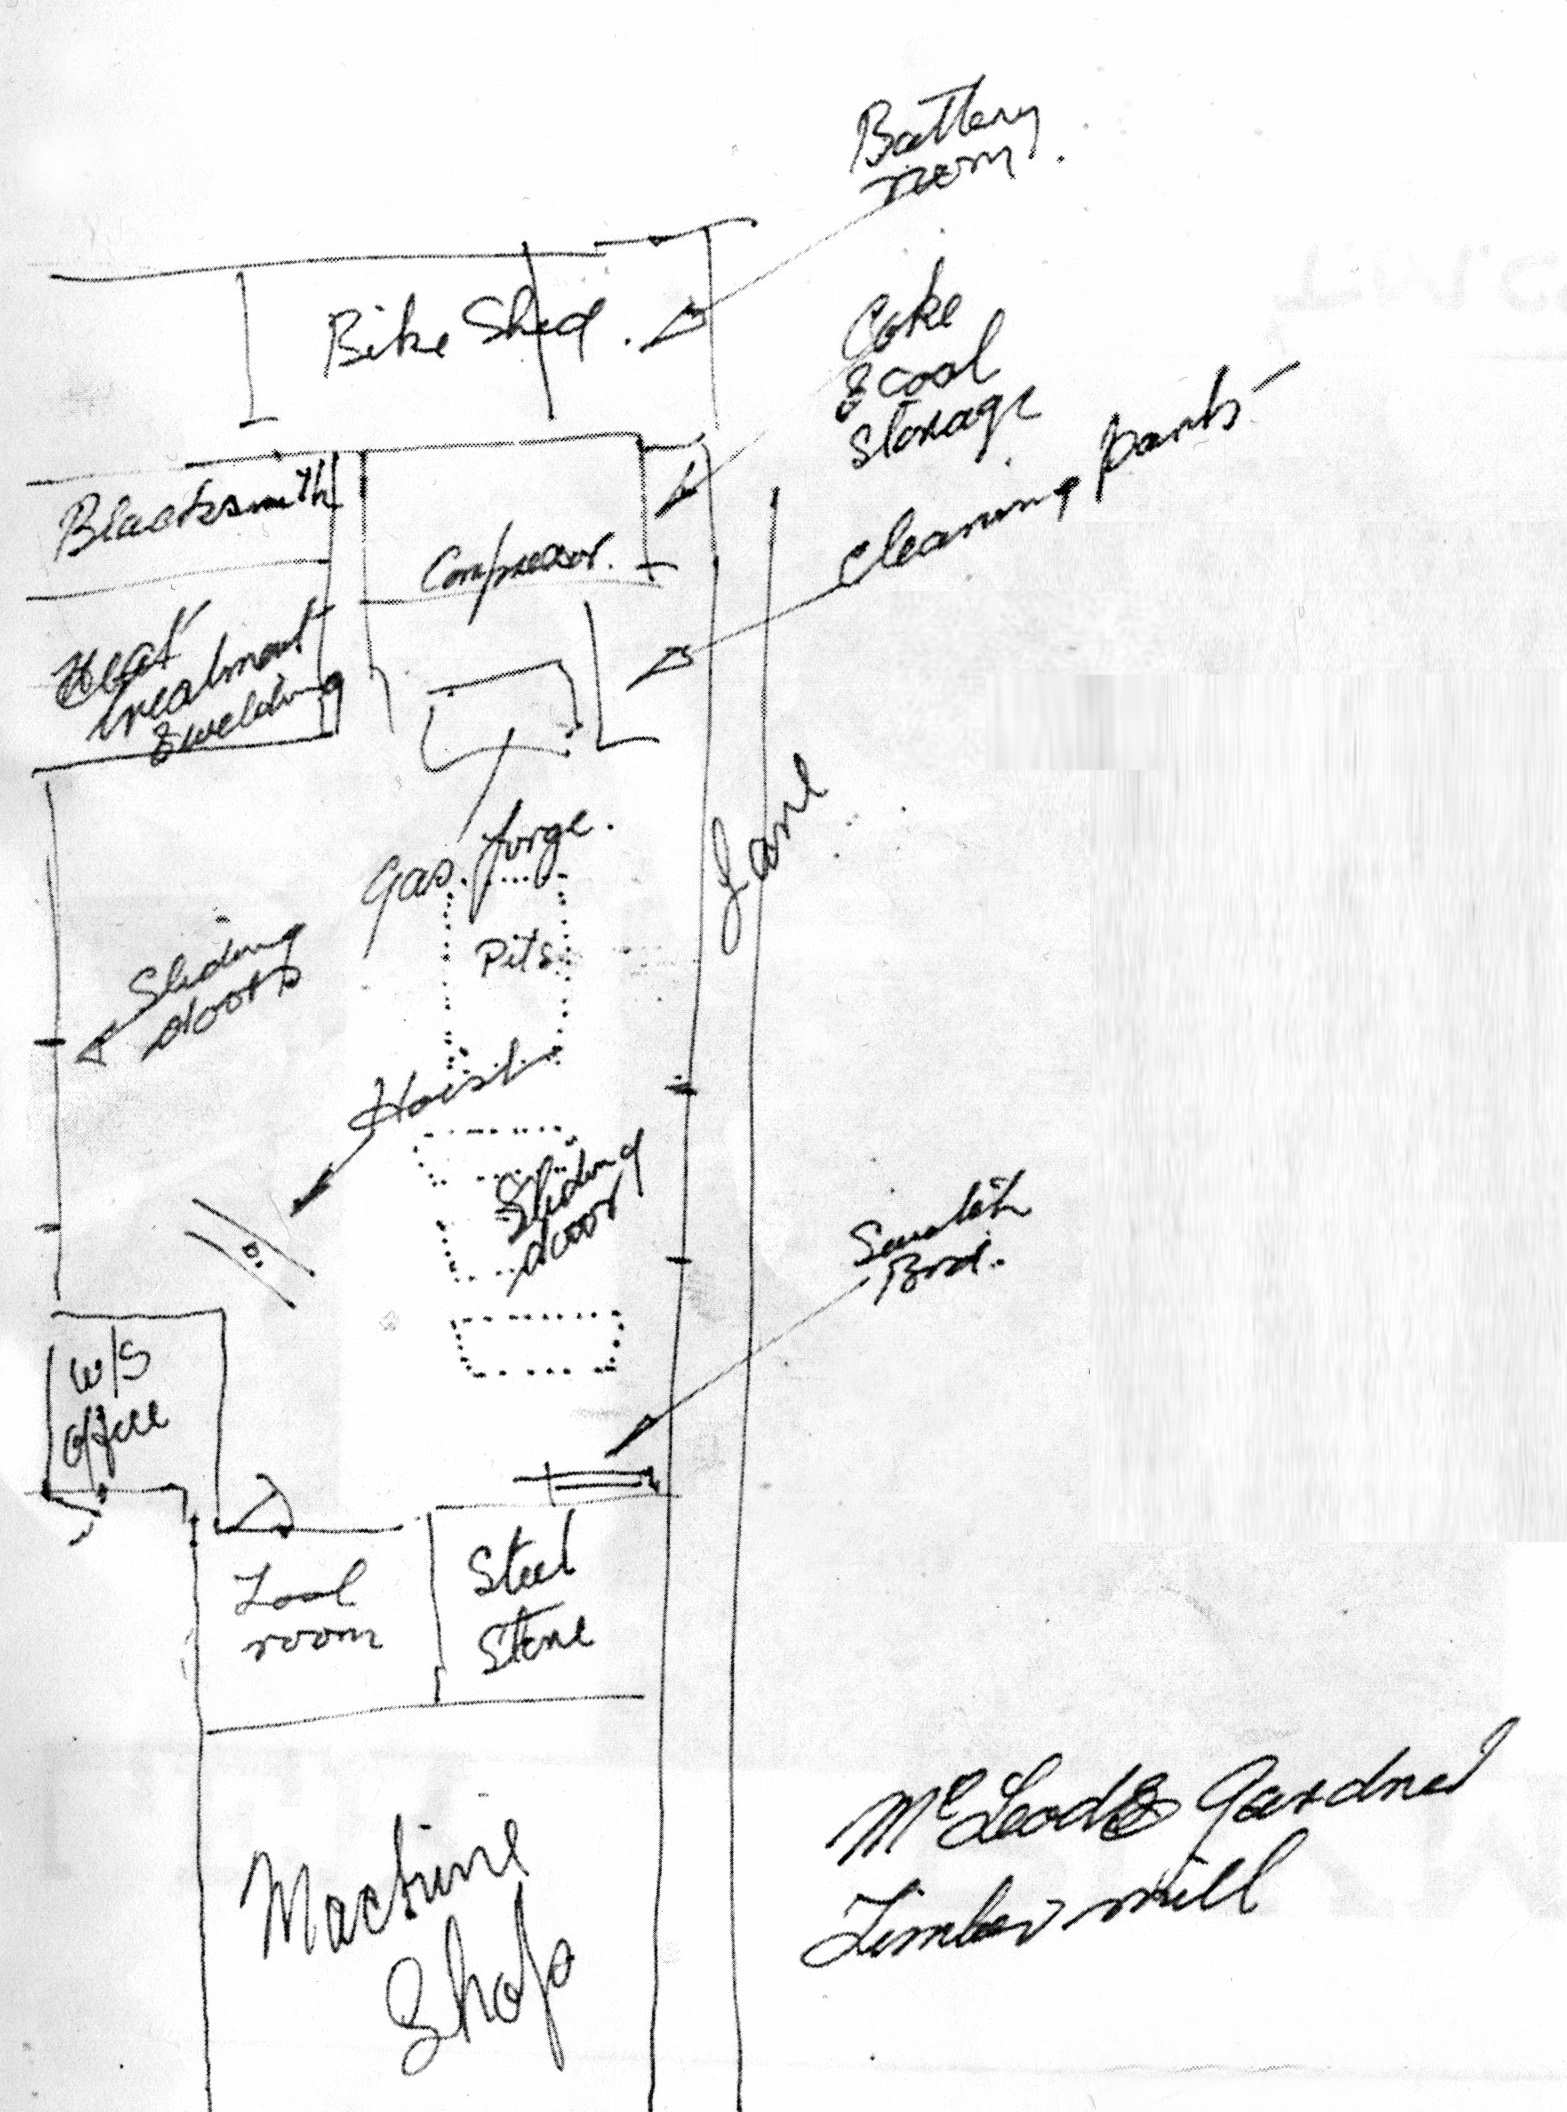 Battery
room.
Bike Shed.
Coke
& coal
storage
cleaning parts
Blacksmith
Compressor.
Heat
treatment
& welding
Gas forge.
Lane
Pits
Sliding
doors
Hoist
Sliding
door
Switch
Brd.
W/S
office
Tool
room
Steel
Store
McLeod & Gardner
Timber mill
Machine
Shop